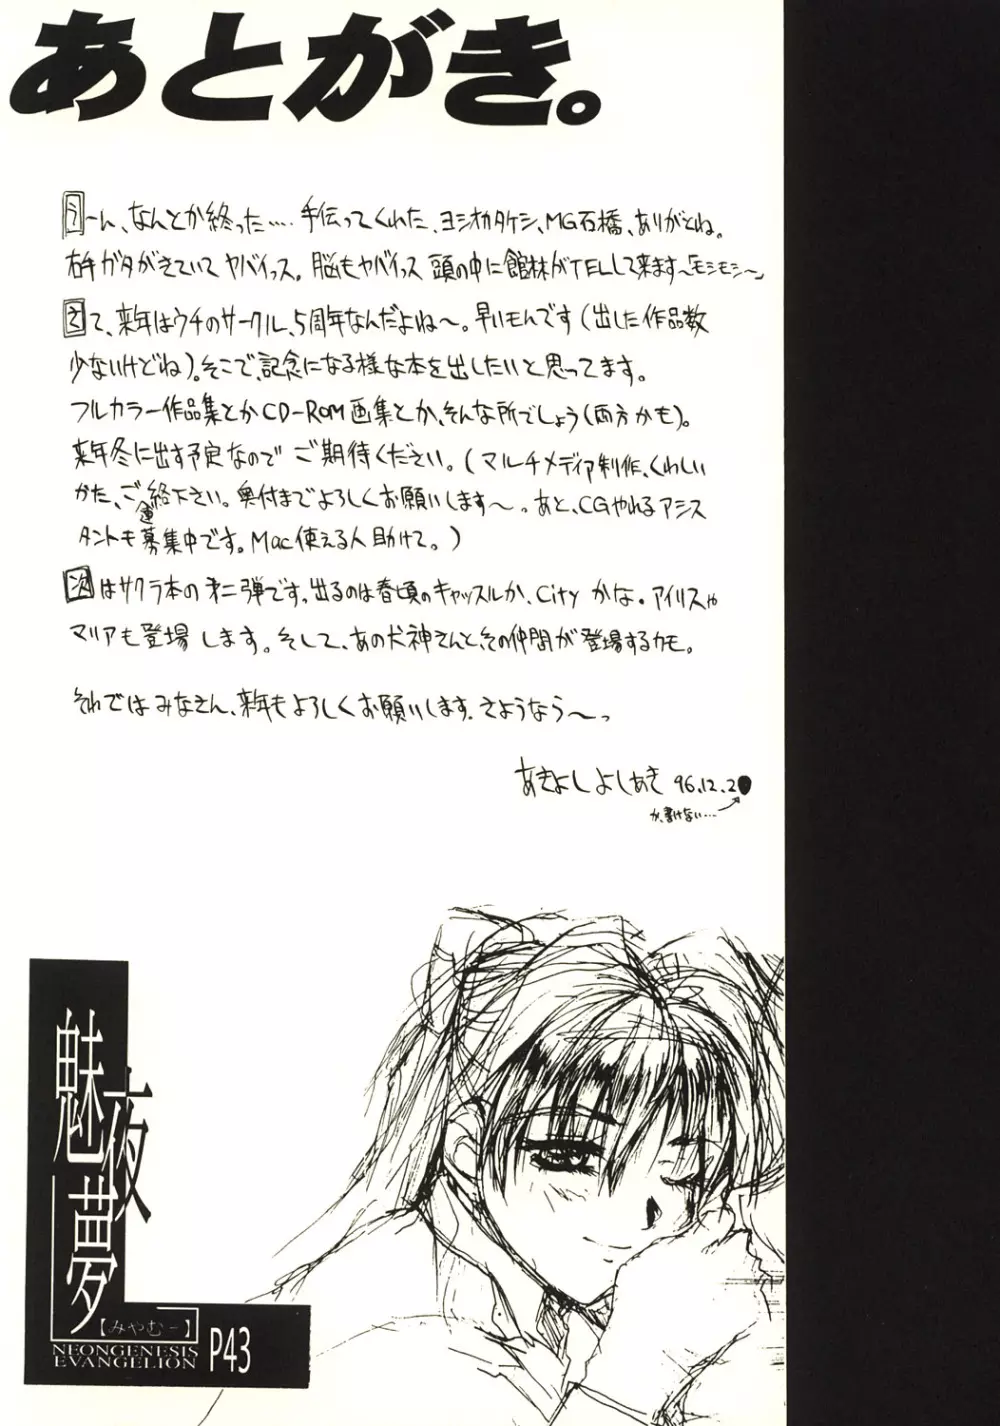 あとがき。
うーん、なんとか終った‥‥手伝ってくれた、ヨシオカタケシ、MG石橋、ありがとね。
右手ガタがきていてヤバイっス。脳もヤバイっス 頭の中に館林がTELして来ます〜「モシモシ〜」
さて、来年はウチのサークル、5周年なんだよね〜。早いモんです(出した作品数
少ないけどね)。そこで、記念になる様な本を出したいと思ってます。
フルカラー作品集とかCD-ROM画集とか、そんな所でしょう(両方かも)。
来年冬に出す予定なので ご期待ください。(マルチメディア制作、くわしい
かた、ご連絡下さい。奥付までよろしくお願いします〜。あと、CGやれるアシス
タントも募集中です。Mac使える人助けて。)
次はサクラ本の第二弾です。出るのは春頃のキャッスルか、Cityかな。アイリスや
マリアも登場します。そして、あの犬神さんと、その仲間が登場するカモ。
それではみなさん、来年もよろしくお願いします。さようなら〜っ
あきよしよしあき 96.12.2
か、書けない…
魅夜夢
【みやむー】
NEONGENESIS
EVANGELION
P43